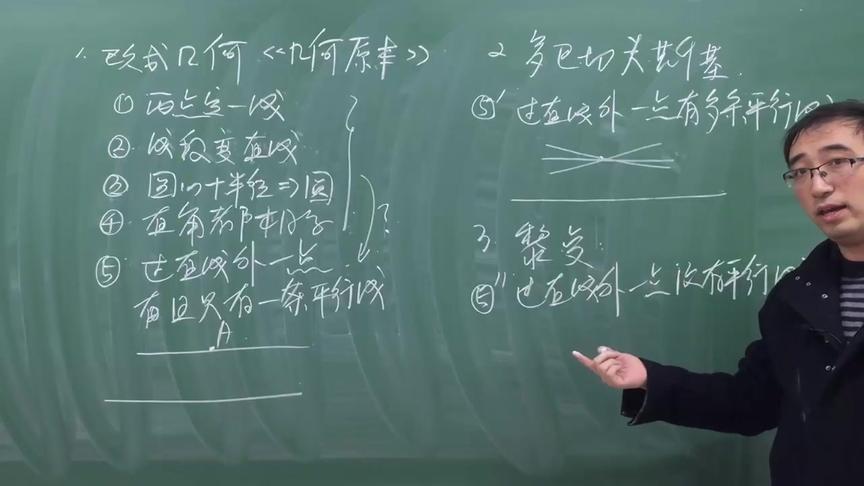 1. 欧式几何《几何原本》
① 两点定一线
② 线段变直线
③ 圆心+半径⇒圆
④ 直角都相等
?
⑤ 过直线外一点
有且只有一条平行线
A
2. 罗巴切夫斯基
⑤' 过直线外一点有多条平行线
3. 黎曼:
⑤'' 过直线外一点没有平行线